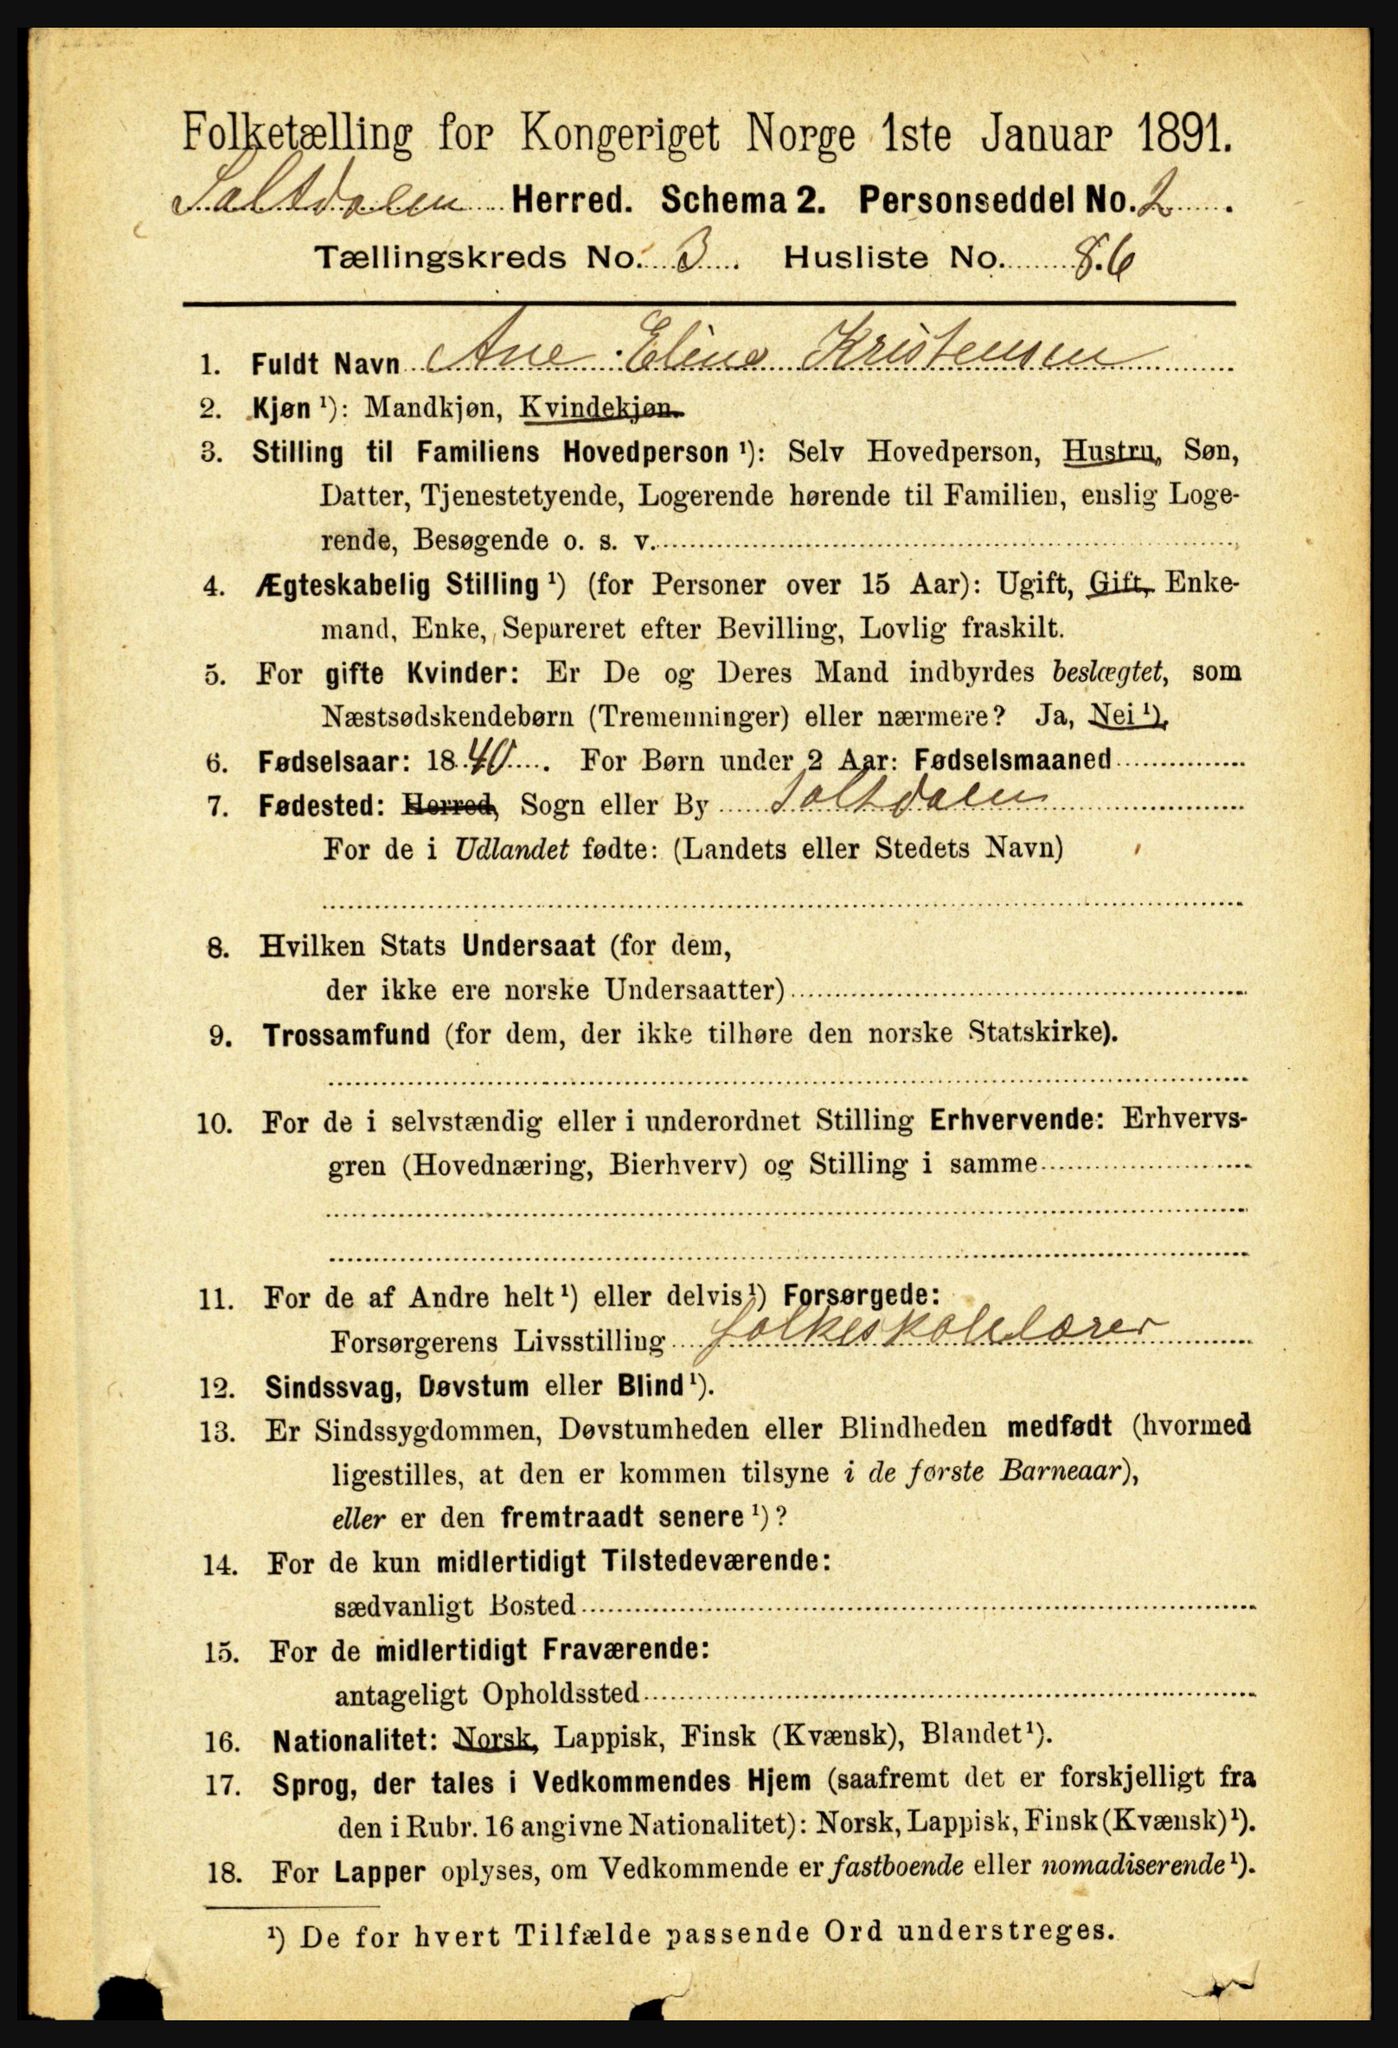 Folketælling for Kongeriget Norge 1ste Januar 1891.
Saltdalen Herred. Schema 2. Personseddel No. 2.
Tællingskreds No. 3. Husliste No. 86
1. Fuldt Navn Ane Elina Kristensen
2. Kjøn ¹): Mandkjøn, Kvindekjøn.
3. Stilling til Familiens Hovedperson ¹): Selv Hovedperson, Hustru, Søn,
Datter, Tjenestetyende, Logerende hørende til Familien, enslig Loge-
rende, Besøgende o. s. v.
4. Ægteskabelig Stilling ¹) (for Personer over 15 Aar): Ugift, Gift, Enke-
mand, Enke, Separeret efter Bevilling, Lovlig fraskilt.
5. For gifte Kvinder: Er De og Deres Mand indbyrdes beslægtet, som
Næstsødskendebørn (Tremenninger) eller nærmere? Ja, Nei ¹),
6. Fødselsaar: 1840. For Børn under 2 Aar: Fødselsmaaned
7. Fødested: Herred, Sogn eller By Saltdalen
For de i Udlandet fødte: (Landets eller Stedets Navn)
8. Hvilken Stats Undersaat (for dem,
der ikke ere norske Undersaatter)
9. Trossamfund (for dem, der ikke tilhøre den norske Statskirke).
10. For de i selvstændig eller i underordnet Stilling Erhvervende: Erhvervs-
gren (Hovednæring, Bierhverv) og Stilling i samme
11. For de af Andre helt ¹) eller delvis ¹) Forsørgede:
Forsørgerens Livsstilling folkeskolelærer
12. Sindssvag, Døvstum eller Blind ¹).
13. Er Sindssygdommen, Døvstumheden eller Blindheden medfødt (hvormed
ligestilles, at den er kommen tilsyne i de første Barneaar),
eller er den fremtraadt senere ¹)?
14. For de kun midlertidigt Tilstedeværende:
sædvanligt Bosted
15. For de midlertidigt Fraværende:
antageligt Opholdssted
16. Nationalitet: Norsk, Lappisk, Finsk (Kvænsk), Blandet ¹).
17. Sprog, der tales i Vedkommendes Hjem (saafremt det er forskjelligt fra
den i Rubr. 16 angivne Nationalitet): Norsk, Lappisk, Finsk (Kvænsk) ¹).
18. For Lapper oplyses, om Vedkommende er fastboende eller nomadiserende ¹).
¹) De for hvert Tilfælde passende Ord understreges.